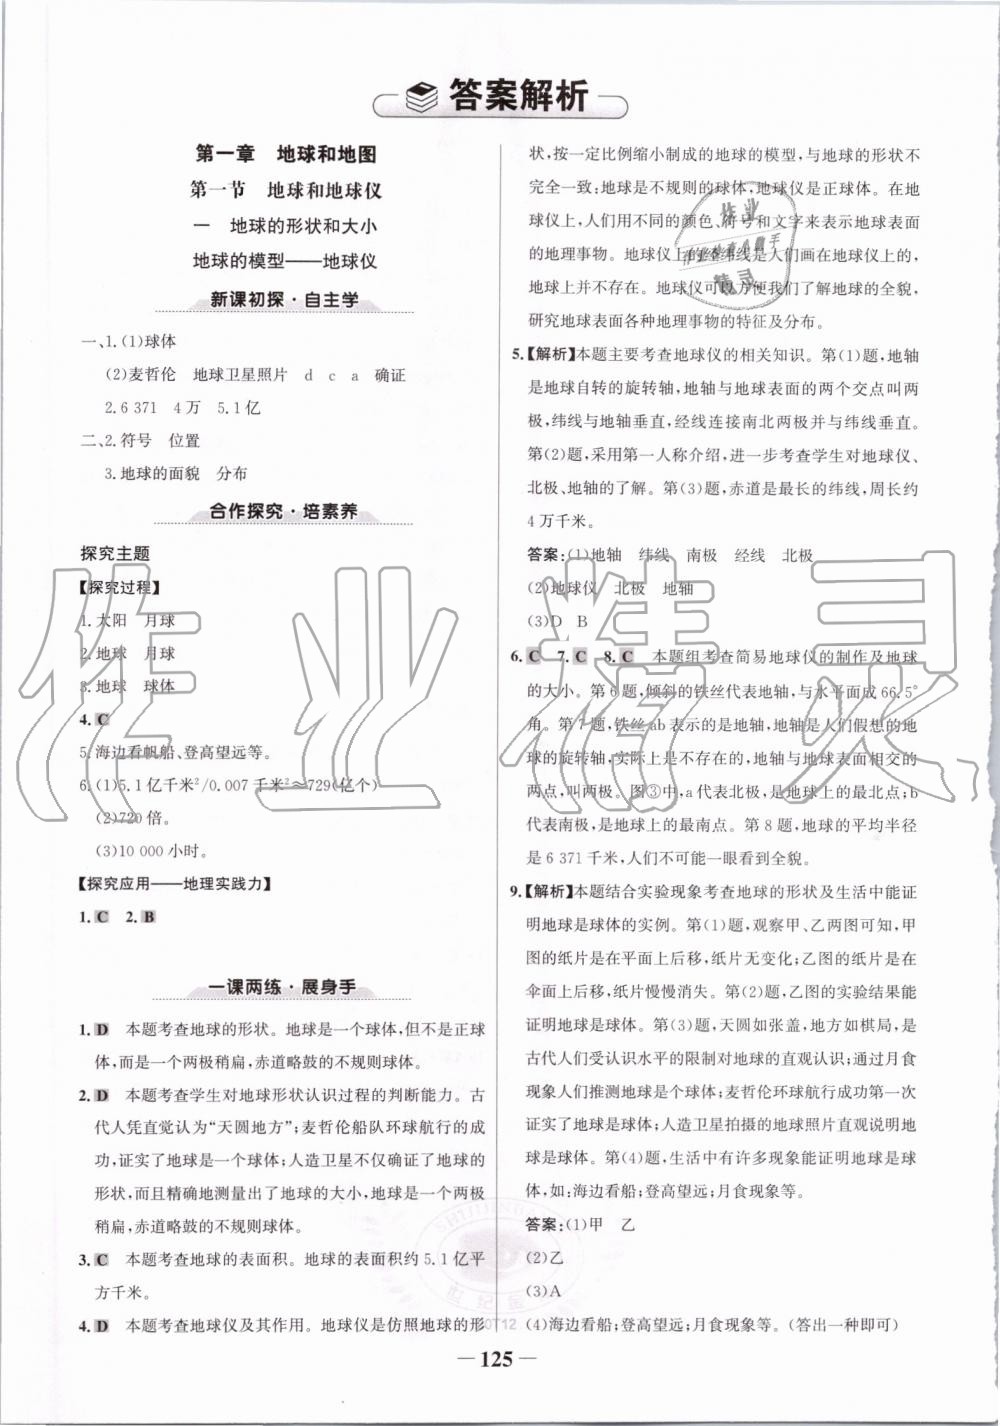 答案解析
第一章　地球和地图
第一节　地球和地球仪
一　地球的形状和大小
地球的模型——地球仪
新课初探·自主学
一、1.(1)球体
(2)麦哲伦　地球卫星照片　d　c　a　确证
2.6 371　4万　5.1亿
二、2.符号　位置
3.地球的面貌　分布
合作探究·培素养
探究主题
【探究过程】
1.太阳　月球
2.地球　月球
3.地球　球体
4.C
5.海边看帆船、登高望远等。
6.(1)5.1亿千米²/0.007千米²≈729(亿个)
(2)720倍。
(3)10 000小时。
【探究应用——地理实践力】
1.C　2.B
一课两练·展身手
1.D　本题考查地球的形状。地球是一个球体,但不是正球
体,而是一个两极稍扁,赤道略鼓的不规则球体。
2.D　本题考查学生对地球形状认识过程的判断能力。古
代人凭直觉认为“天圆地方”;麦哲伦船队环球航行的成
功,证实了地球是一个球体;人造卫星不仅确证了地球的
形状,而且精确地测量出了地球的大小,地球是一个两极
稍扁,赤道略鼓的不规则球体。
3.C　本题考查地球的表面积。地球的表面积约5.1亿平
方千米。
4.D　本题考查地球仪及其作用。地球仪是仿照地球的形
状,按一定比例缩小制成的地球的模型,与地球的形状不
完全一致;地球是不规则的球体,地球仪是正球体。在地
球仪上,人们用不同的颜色、符号和文字来表示地球表面
的地理事物。地球仪上的经纬线是人们画在地球仪上的,
地球上并不存在。地球仪可以方便我们了解地球的全貌,
研究地球表面各种地理事物的特征及分布。
5.【解析】本题主要考查地球仪的相关知识。第(1)题,地轴
是地球自转的旋转轴,地轴与地球表面的两个交点叫两
极,纬线与地轴垂直,经线连接南北两极并与纬线垂直。
第(2)题,采用第一人称介绍,进一步考查学生对地球仪、
北极、地轴的了解。第(3)题,赤道是最长的纬线,周长约
4万千米。
答案:(1)地轴　纬线　南极　经线　北极
(2)地球仪　北极　地轴
(3)D　B
6.C　7.C　8.C　本题组考查简易地球仪的制作及地球
的大小。第6题,倾斜的铁丝代表地轴,与水平面成66.5°
角。第7题,铁丝ab表示的是地轴,地轴是人们假想的地
球的旋转轴,实际上是不存在的,地轴与地球表面相交的
两点,叫两极。图③中,a代表北极,是地球上的最北点;b
代表南极,是地球上的最南点。第8题,地球的平均半径
是6 371千米,人们不可能一眼看到全貌。
9.【解析】本题结合实验现象考查地球的形状及生活中能证
明地球是球体的实例。第(1)题,观察甲、乙两图可知,甲
图的纸片是在平面上后移,纸片无变化;乙图的纸片是在
伞面上后移,纸片慢慢消失。第(2)题,乙图的实验结果能
证明地球是球体。第(3)题,天圆如张盖,地方如棋局,是
古代人们受认识水平的限制对地球的直观认识;通过月食
现象人们推测地球是个球体;麦哲伦环球航行成功第一次
证实了地球是球体;人造卫星拍摄的地球照片直观说明了
地球是球体。第(4)题,生活中有许多现象能证明地球是球
体,如:海边看船;登高望远;月食现象等。
答案:(1)甲　乙
(2)乙
(3)A
(4)海边看船;登高望远;月食现象等。(答出一种即可)
— 125 —
作业精灵